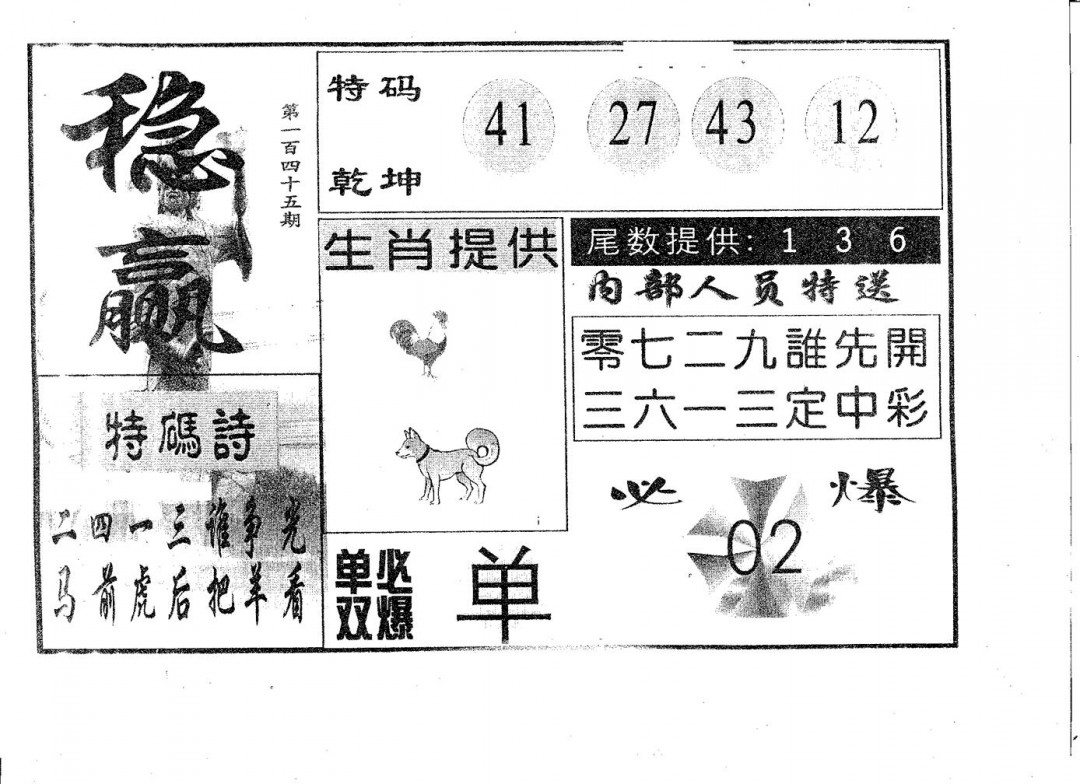 稳赢
第一百四十五期
特码
乾坤
41 27 43 12
生肖提供
尾数提供: 1 3 6
内部人员特送
零七二九誰先開
三六一三定中彩
特碼詩
二四一三谁争光
马前虎后把羊看
必爆
02
单双
必爆
单